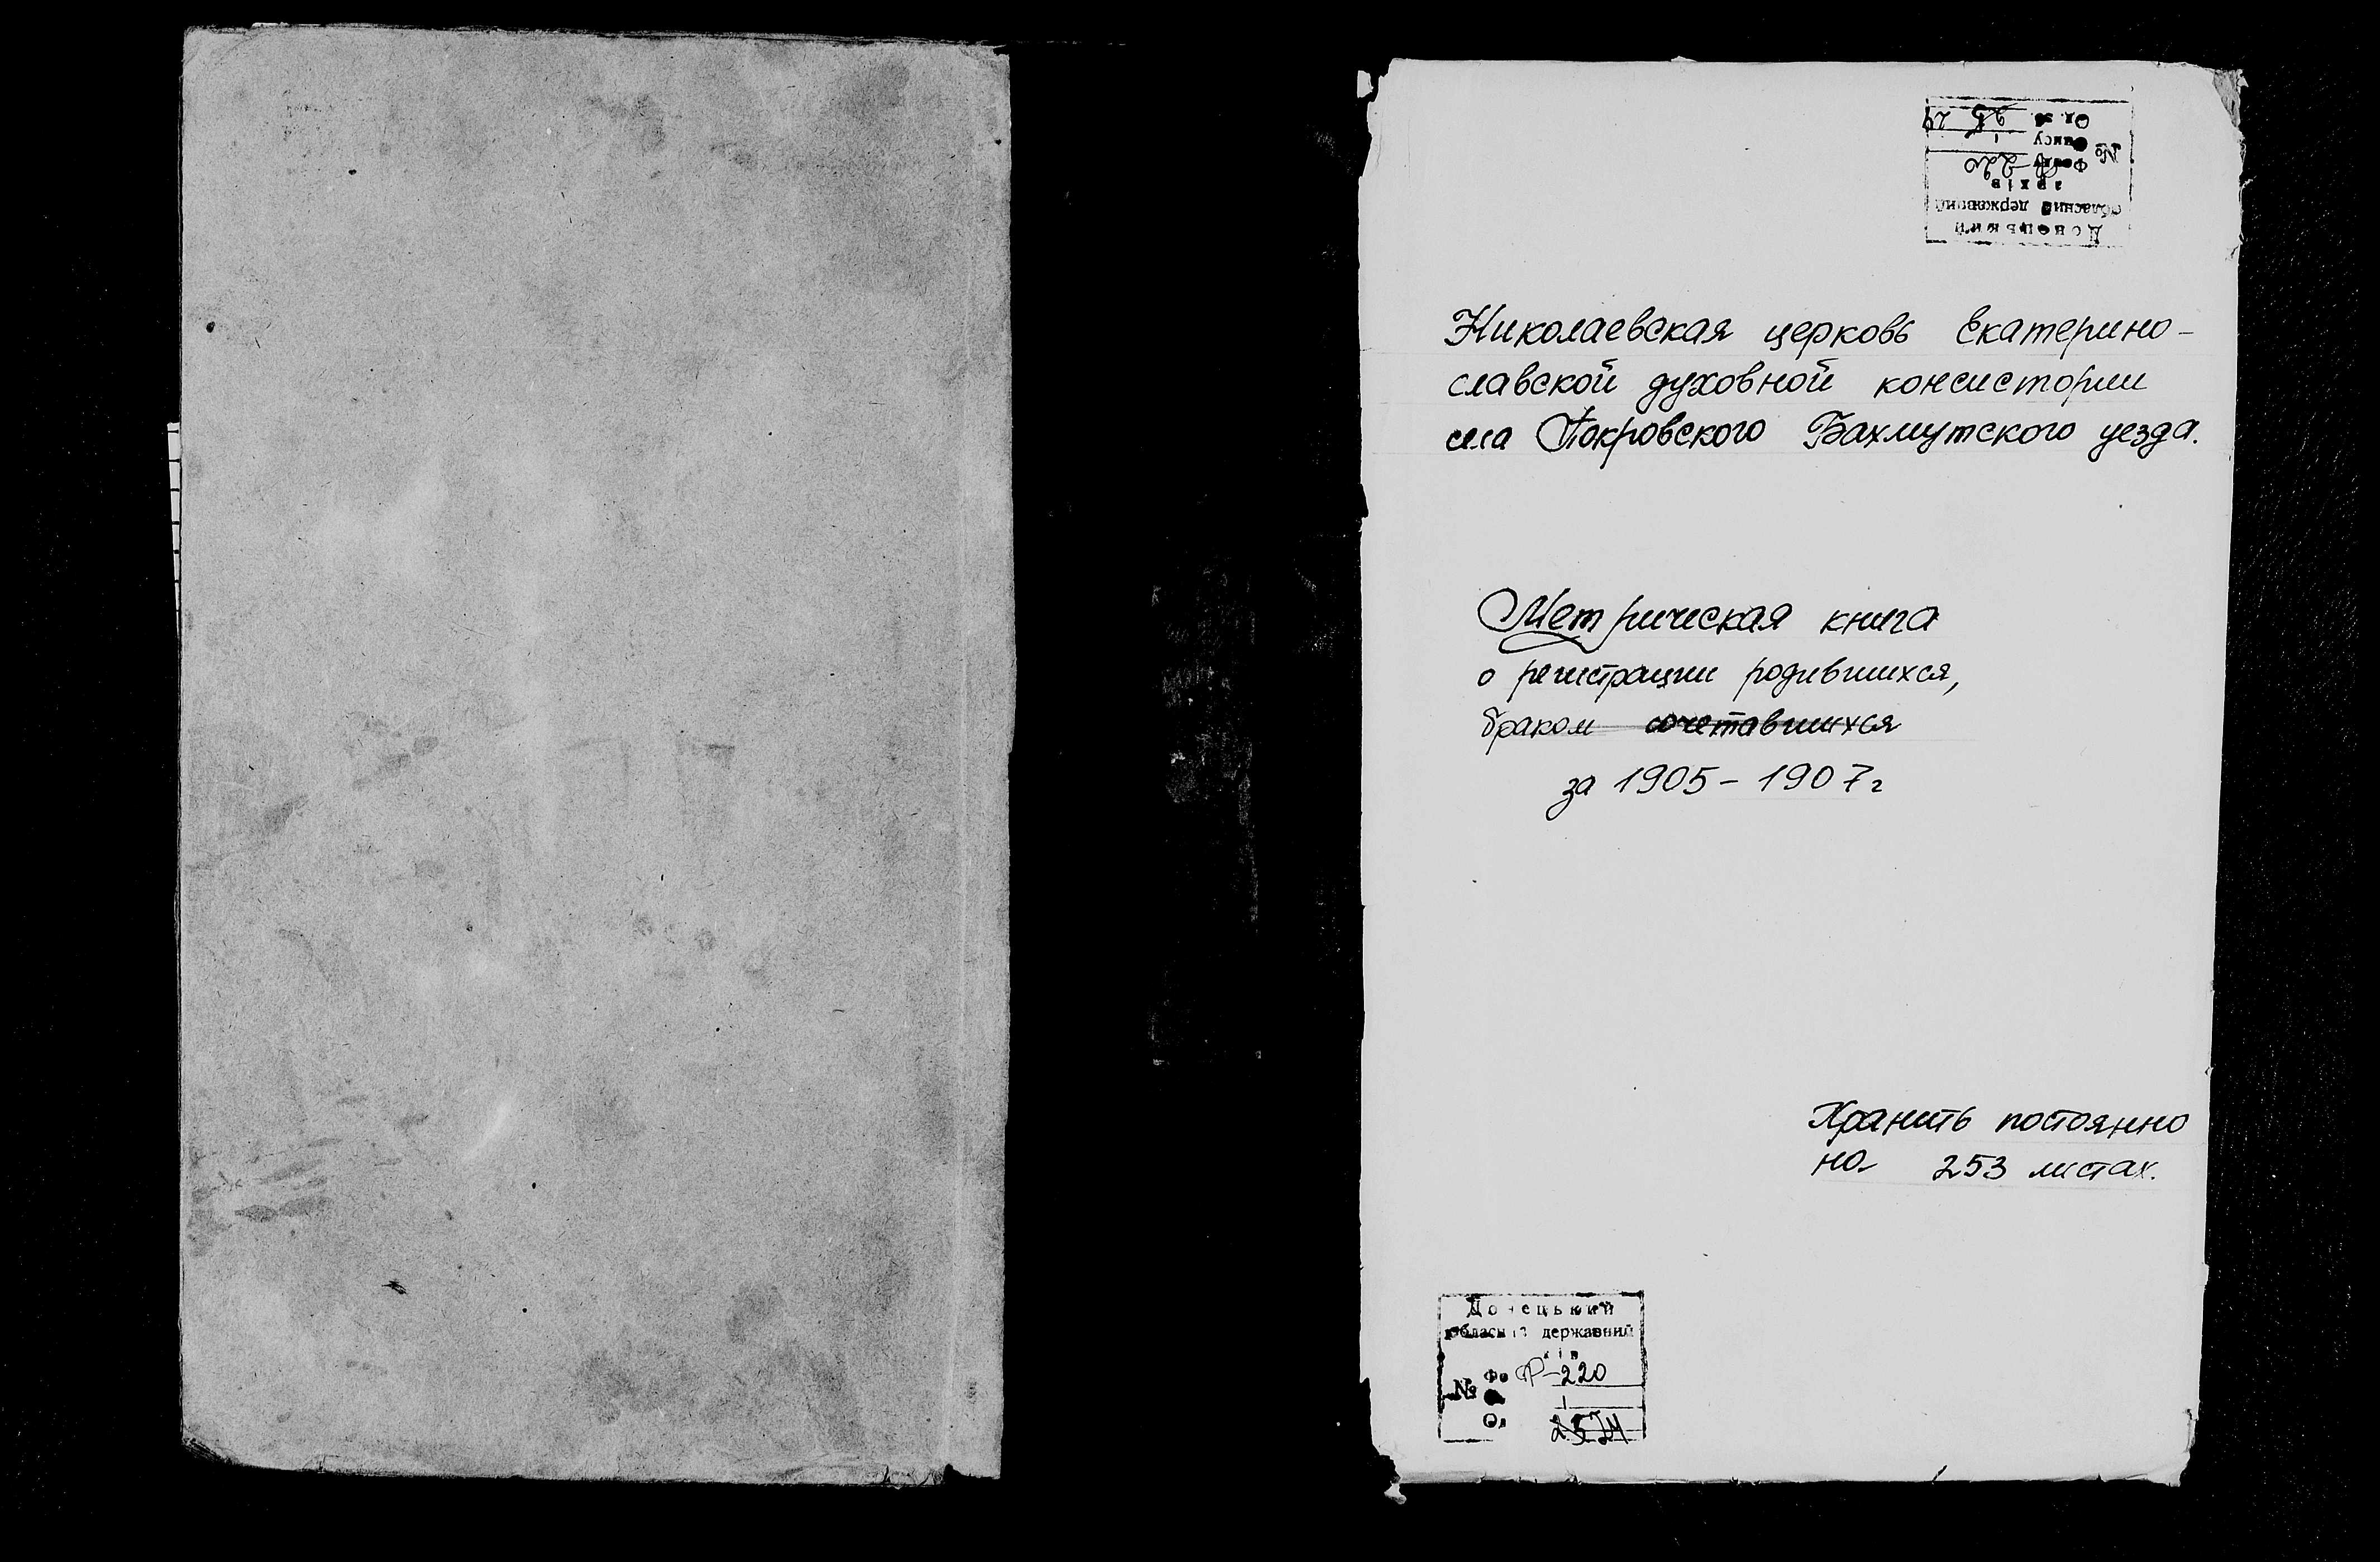 Донецький
обласний державний
архів
№ Фонду Р-220
Опису 1
Од. зб.
Николаевская церковь Екатерино-
славской духовной консистории
села Покровского Бахмутского уезда.
Метрическая книга
о регистрации родившихся,
браком сочетавшихся
за 1905-1907г
Хранить постоянно
на 253 листах.
Донецький
державний
№ Р-220
1